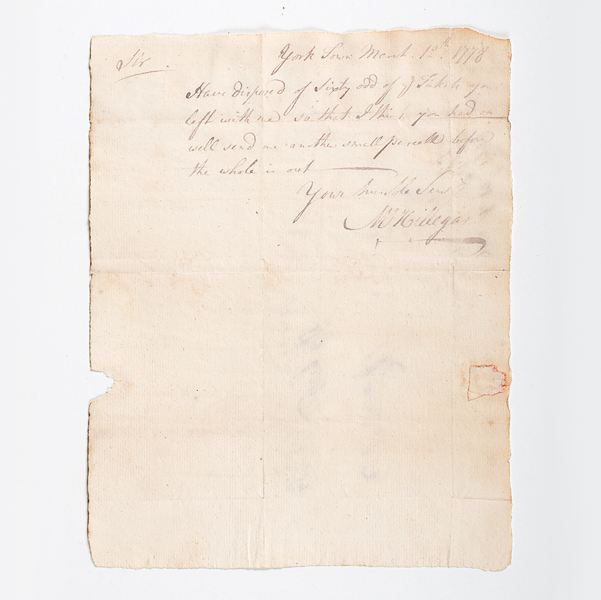 Sir
York Town March 12th 1778
Have disposed of Sixty odd of ye Tickets you
left with me so that I think you had as
well send me another small parcell before
the whole is out
Your humble Servt
Ms Hillegas